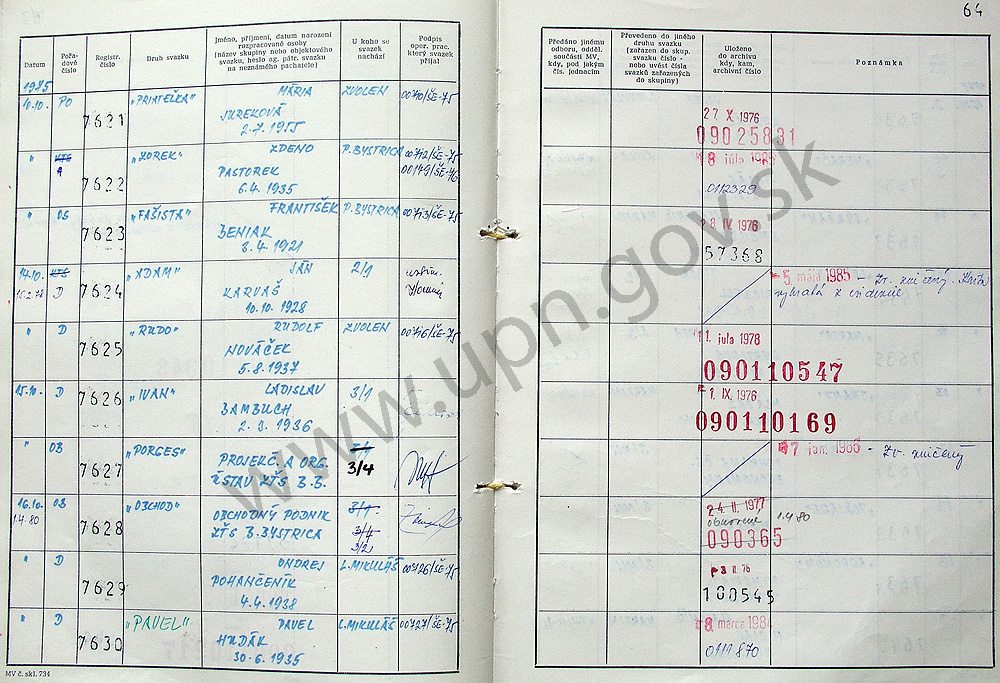 64
Datum
Pořadové číslo
Registr. číslo
Druh svazku
Jméno, příjmení, datum narození
rozpracované osoby
(název skupiny nebo objektového
svazku, heslo ag. pátr. svazku
na neznámého pachatele)
U koho se
svazek
nachází
Podpis
oper. prac.
který svazek
přijal
Předáno jinému
odboru, odděl.
součásti MV,
kdy, pod jakým
čís. jednacím
Převedeno do jiného
druhu svazku
(zařazen do skup.
svazku číslo -
nebo uvést čísla
svazků zařazených
do skupiny)
Uloženo
do archivu
kdy, kam,
archivní číslo
Poznámka
1975
4.10. PO 7621 "PRIATEĽKA" MÁRIA ZVOLEN 00710/ŠE-75
JUREKOVÁ
2.7.1955
27 X 1976
09025831
" 7622 "ZOREK" ZDENO P. BYSTRICA 00712/ŠE-75
PASTOREK 00149/ŠE-76
6.4.1935
8 júla
0112329
" OS 7623 "FAŠISTA" FRANTIŠEK P. BYSTRICA 00713/ŠE-75
BENIAK
3.4.1921
28 IV. 1976
57368
14.10. KTS 7624 "ADAM" JÁN 2/1
D KARVAŠ
10.10.1928
5 mája 1985 - Zv. zničený.
" D 7625 "RUDO" RUDOLF ZVOLEN 00716/ŠE-75
NOVÁČEK
5.8.1937
11. júla 1978
090110547
15.10. D 7626 "IVAN" LADISLAV 3/1
BAMBUCH
2.3.1936
1. IX. 1976
090110169
" OB 7627 "PORCES" PROJEKČ. A ORG. 3/1
ÚSTAV ZŤS B.B. 3/4
7 jan. 1986 - Zv. zničený
16.10. OB 7628 "OBCHOD" OBCHODNÝ PODNIK 3/1
1.4.80 ZŤS B.BYSTRICA 3/4
3/2
24. II. 1977
obnovené 1.4.80
090365
" D 7629 ONDREJ L.MIKULÁŠ 00726/ŠE-75
POHANČENÍK
4.4.1938
3 II 76
100545
" D 7630 "PAVEL" PAVEL L.MIKULÁŠ 00727/ŠE-75
HUDÁK
30.6.1935
8 marca 1984
0111870
MV č. skl. 734
www.upn.gov.sk